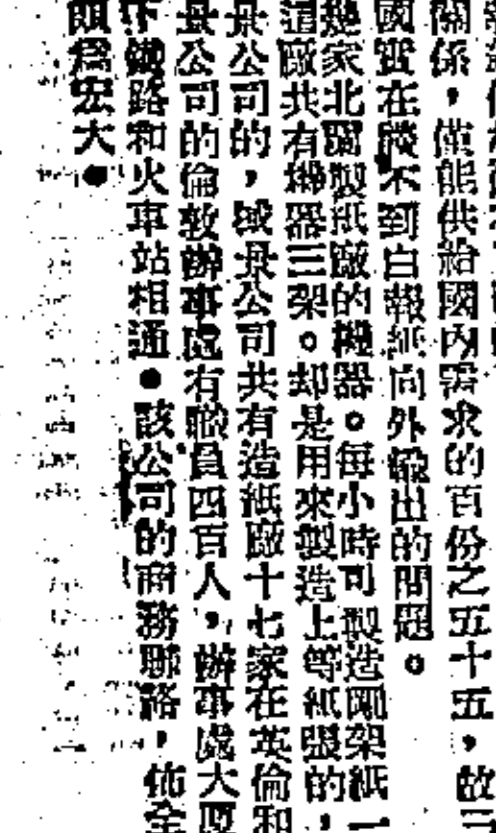 關係，僅能供給國內需求的百份之五十五，故三
國實在談不到白報紙向外輸出的問題。
幾家北國製紙廠的機器。每小時司製造兩架紙一
這廠共有機器三架。却是用來製造上等紙張的，
公司的，域公司共有造紙廠十七家在英倫和
公司的倫敦辦事處有職員四百人，辦事處大厦
下鐵路和火車站相通●該公司的商務聯絡，佈全
頗爲宏大●